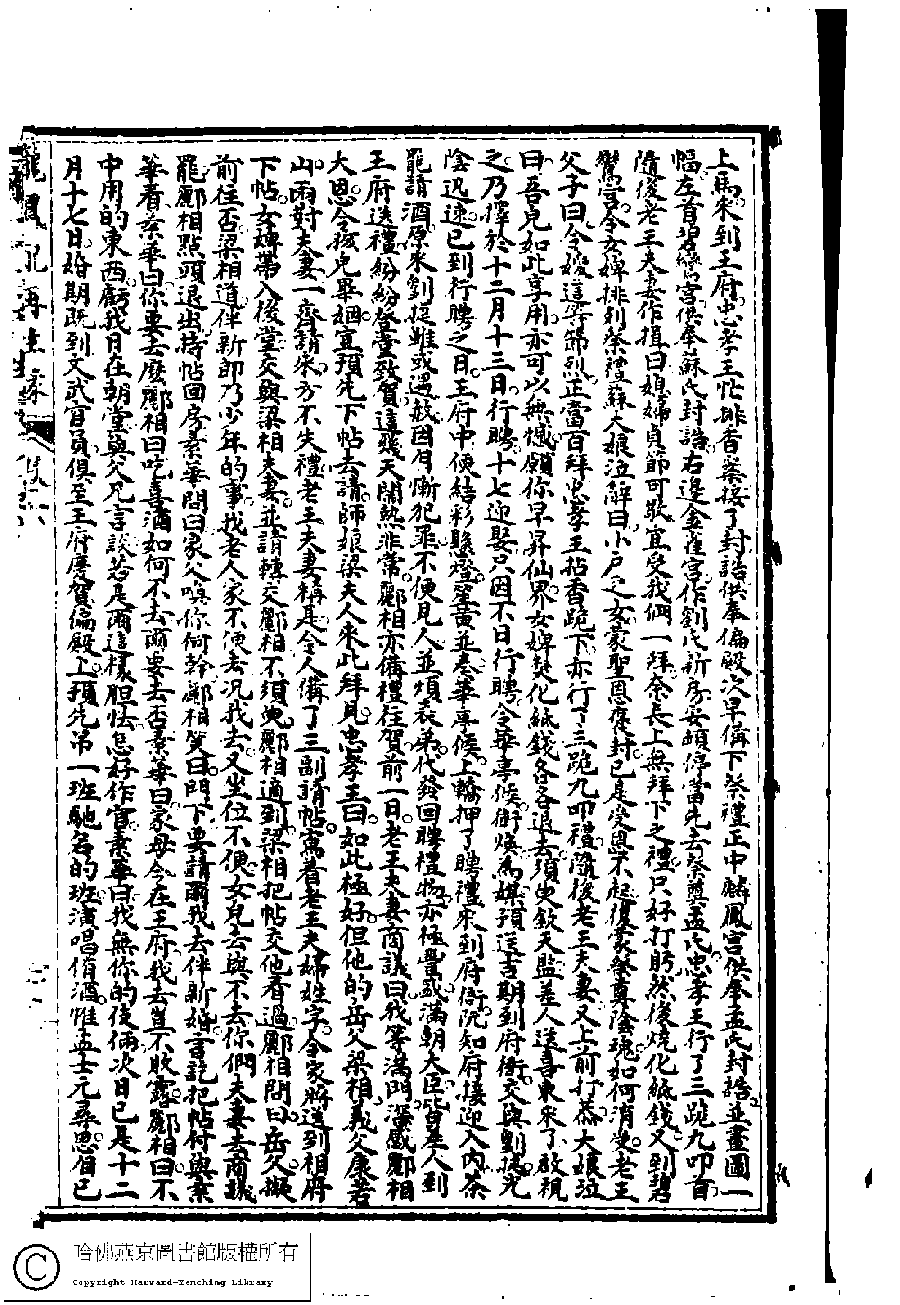 上馬來到王府忠孝王忙排香案接了封誥供奉偏殿次早俻下祭禮正中麟鳳宮供奉孟氏封誥並畫圖一
幅左首碧鸞宮供奉蘇氏封誥右邊金雀宮作劉氏新房安頓停當先去祭奠孟氏忠孝王行了三跪九叩首
隨後老王夫妻作揖曰媳婦貞節可敬宜受我們一拜奈長上無拜下之禮只好打躬然後燒化紙錢又到碧
鸞宮令女婢排列祭禮蘇大娘泣解曰小戶之女蒙聖恩褒封已是受恩不起復蒙祭奠陰魂如何消受老王
父子曰令嫒這等節烈正當百拜忠孝王拈香跪下亦行了三跪九叩禮隨後老王夫妻又上前打恭大娘泣
曰吾兒如此享用亦可以無憾願你早昇仙界女婢焚化紙錢各各退去須臾欽天監差人送喜柬來了啟視
之乃擇於十二月十三日行聘十七迎娶只因不日行聘令華亭侯衛煥為媒預送吉期到府衙交與劉捷光
陰迅速已到行聘之日王府中便結彩懸燈筵黃並奏華亭侯上轎押了聘禮來到府衙阮知府接迎入內茶
罷請酒原來劉捷雖或過獄因自慚犯罪不便見人並煩表弟代發回聘禮物亦極豐或滿朝大臣皆差人到
王府送禮紛紛登堂致賀這幾天鬧熱非常酈相亦備禮往賀前一日老王夫妻商議曰我等滿門深感酈相
大恩今孩兒畢姻宜預先下帖去請師娘梁夫人來此拜見忠孝王曰如此極好但他的岳父梁相義父康若
山兩對夫妻一齊請來方不失禮老王夫妻稱是令人俻了三副請帖寫着老王夫婦姓字令家將送到相府
下帖女婢帶入後堂交與梁相夫妻並請轉交酈相不須臾酈相適到梁相把帖交他看過酈相問曰岳父擬
前往否梁相道伴新郎乃少年的事我老人家不便去况我去又坐位不便女兒去與不去你們夫妻去商議
罷酈相點頭退出持帖回房素華問曰家父喚你何幹酈相笑曰門下要請爾我去伴新婚言訖把帖付與素
華看素華曰你要去麽酈相曰吃喜酒如何不去爾要去否素華曰家母今在王府我去豈不敗露酈相曰不
中用的東西虧我日在朝堂與父兄言談若是爾這樣胆怯怎好作官素華曰我無你的伎倆次日已是十二
月十七日婚期既到文武百員俱至王府慶賀偏殿上預先吊一班馳名的班演唱侑酒惟孟士元尋思自己
哈佛燕京圖書館版權所有
Copyright Harvard-Yenching Library